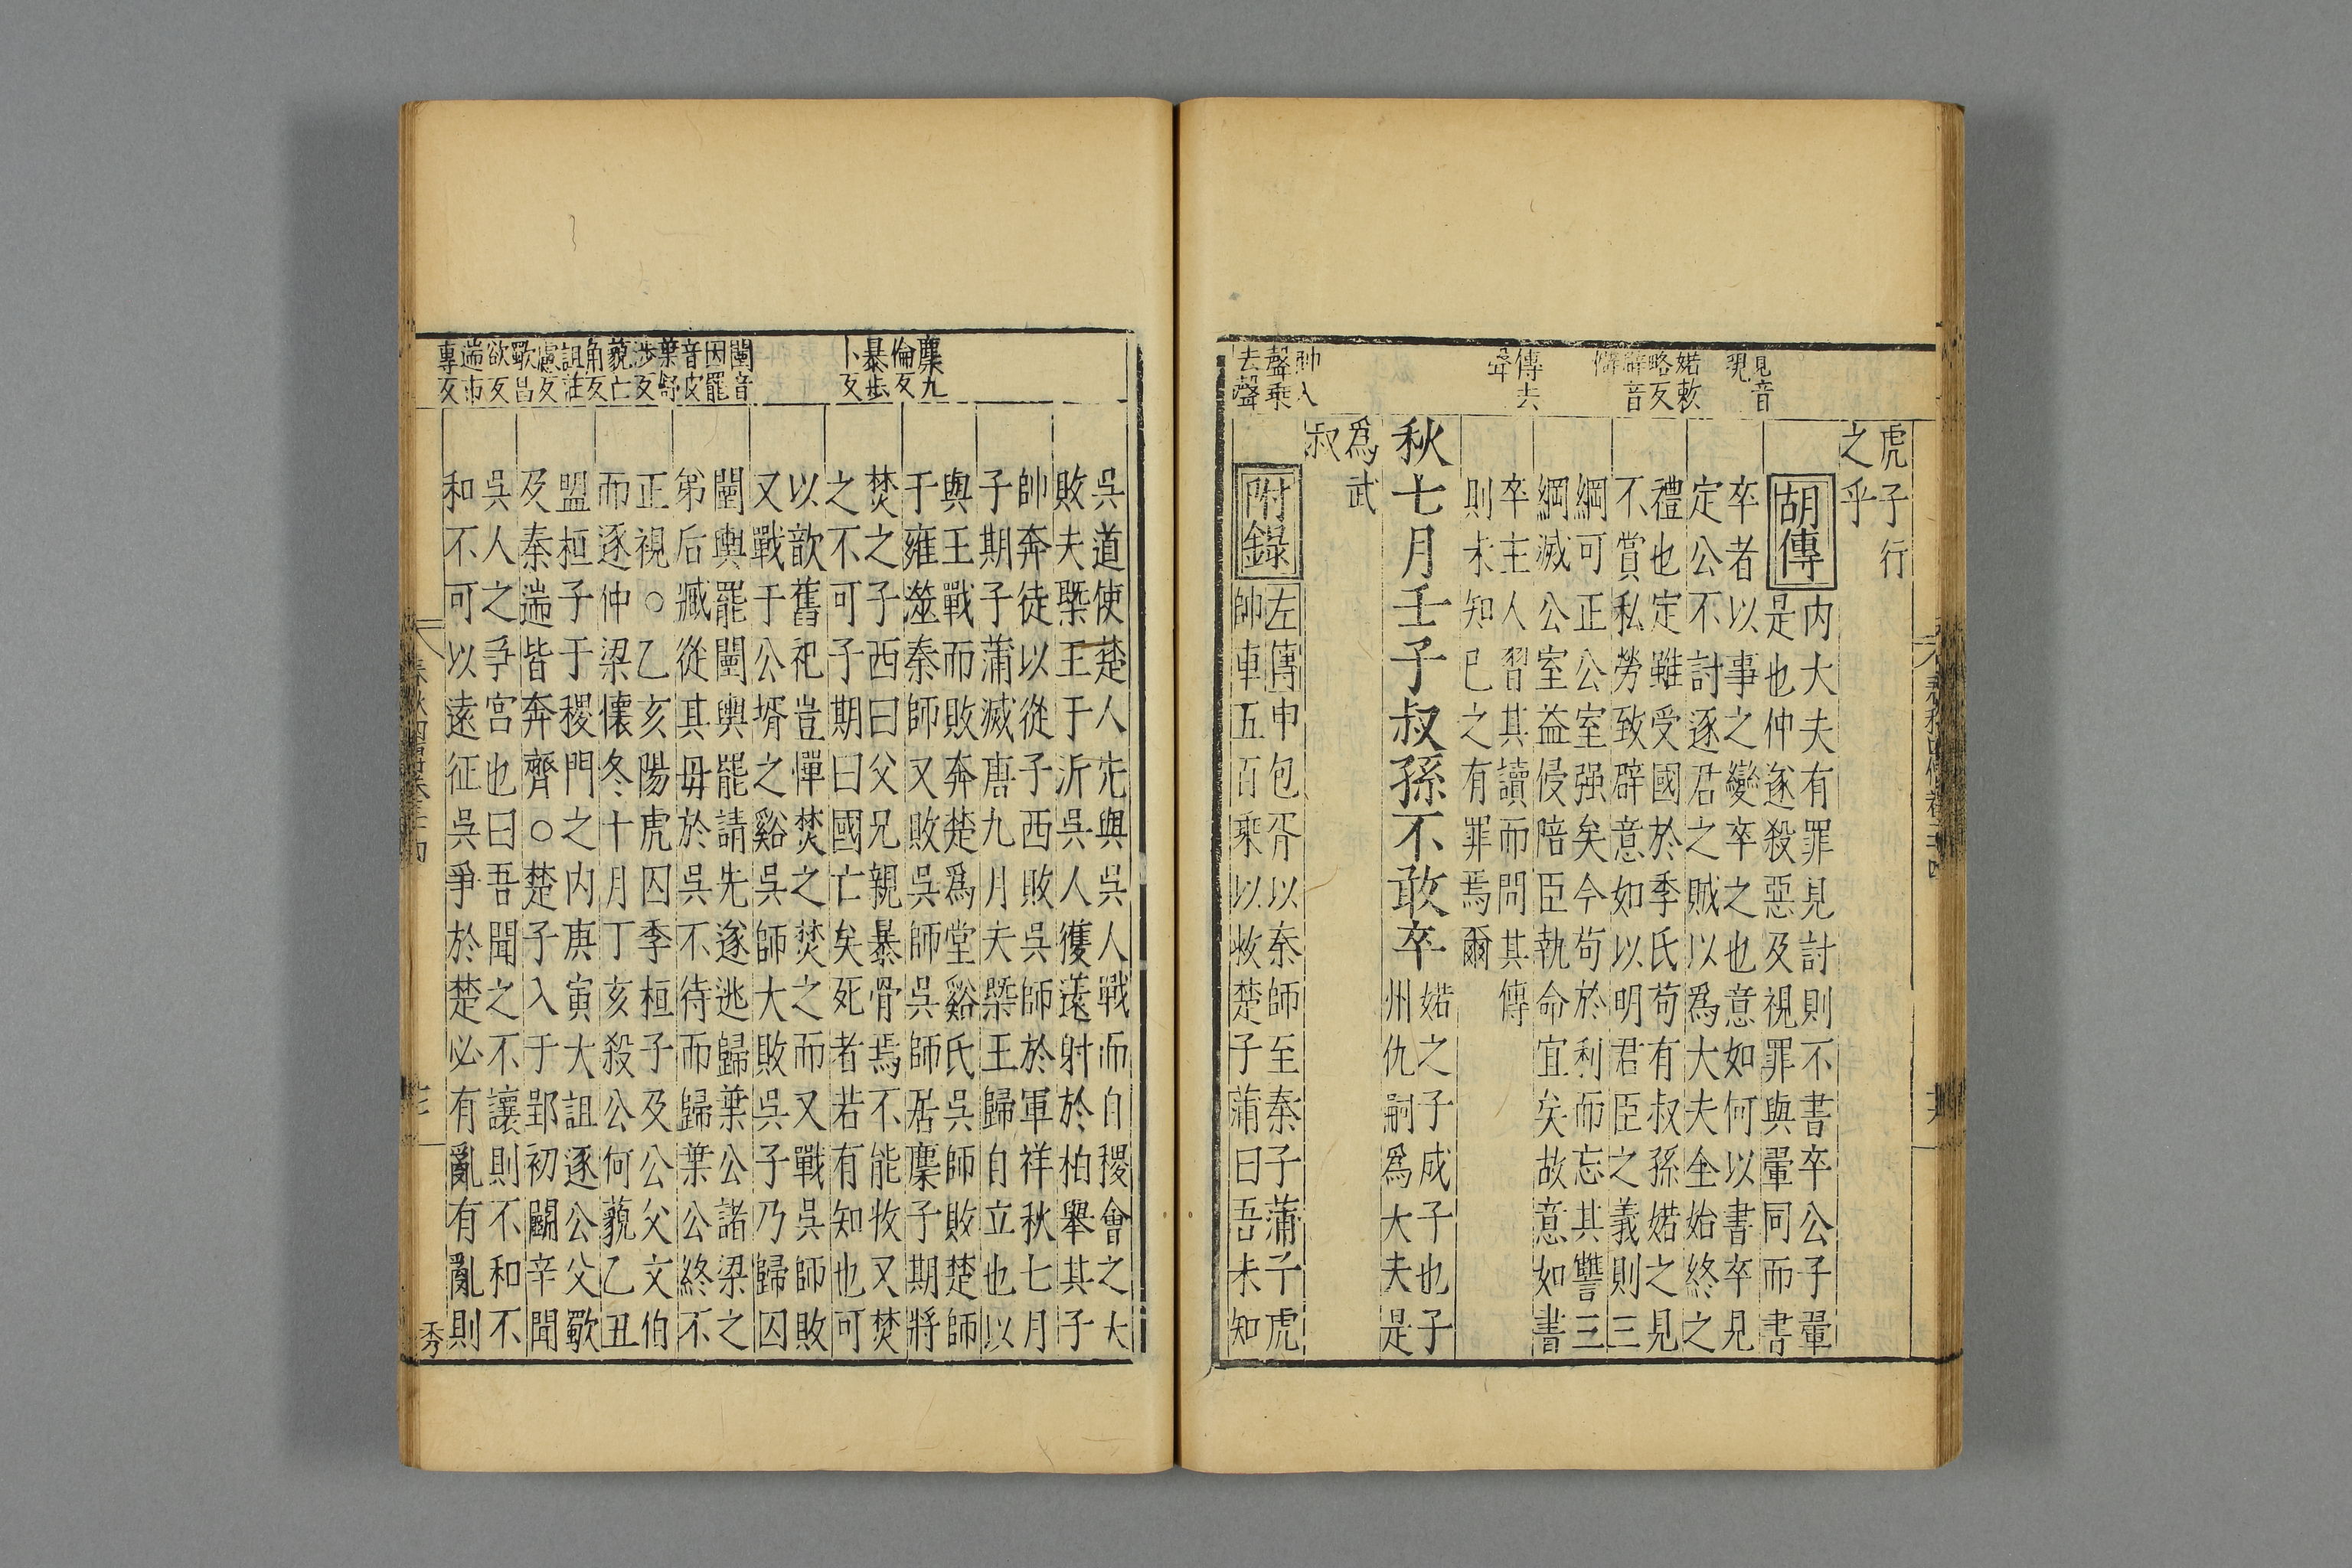 虎子行
之乎
胡傳
内大夫有罪見討則不書卒公子翬
是也仲遂殺惡及視罪與翬同而書
卒者以事之變卒之也意如何以書卒見
定公不討逐君之賊以為大夫全始終之
禮也定雖受國於季氏苟有叔孫婼之見
不賞私勞致辟意如以明君臣之義則三
綱可正公室强矣今苟於利而忘其讐三
綱滅公室益侵陪臣執命宜矣故意如書
卒主人習其讀而問其傳
則未知已之有罪焉爾
秋七月壬子叔孫不敢卒
婼之子成子也子
州仇嗣爲大夫是
爲武
叔
附錄
左傳申包胥以秦師至秦子蒲子虎
帥車五百乘以救楚子蒲曰吾未知
見音
現
婼敕
略反
辟音
僻
傳去
聲
帥入
聲乗
去聲
吳道使楚人先與吳人戰而自稷會之大
敗夫槩王于沂吳人獲薳射於柏舉其子
帥奔徒以從子西敗吳師於軍祥秋七月
子期子蒲滅唐九月夫槩王歸自立也以
與王戰而敗奔楚爲堂谿氏吳師敗楚師
于雍澨秦師又敗吳師吳師居麇子期將
焚之子西曰父兄親暴骨焉不能收又焚
之不可子期曰國亡矣死者若有知也可
以歆舊祀豈憚焚之焚之而又戰吳師敗
又戰于公壻之谿吳師大敗吳子乃歸囚
闉輿罷闉輿罷請先遂逃歸葉公諸梁之
弟后臧從其母於吳不待而歸葉公終不
正視○乙亥陽虎囚季桓子及公父文伯
而逐仲梁懷冬十月丁亥殺公何藐乙丑
盟桓子于稷門之内庚寅大詛逐公父歜
及秦遄皆奔齊○楚子入于郢初鬬辛聞
吳人之爭宮也曰吾聞之不讓則不和不
和不可以遠征吳爭於楚必有亂有亂則
麇九
倫反
暴步
卜反
闉音
因罷
音皮
葉舒
涉反
藐亡
角反
詛莊
慮反
歜昌
欲反
遄市
專反
秀